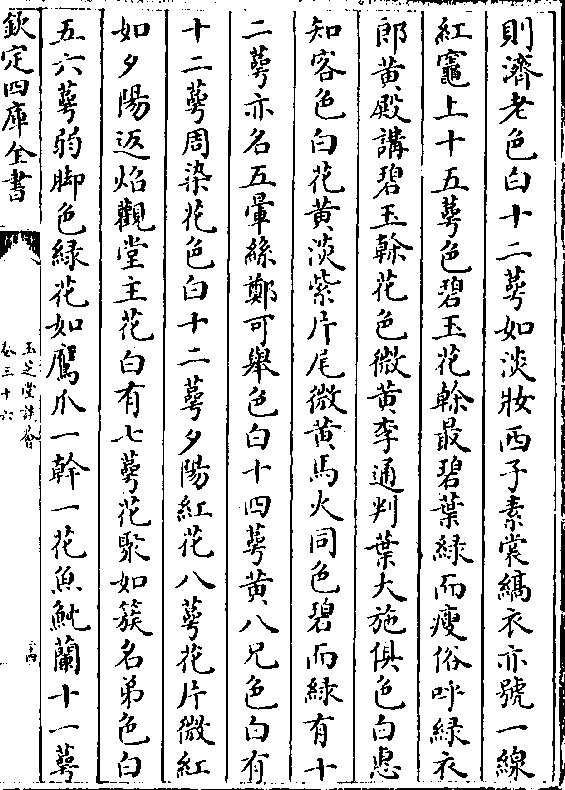 則濟老色白十二萼如淡妝西子素裳縞衣亦號一線
紅竈上十五萼色碧玉花榦最碧葉緑而瘦俗呼緑衣
郎黃殿講碧玉榦花色微黃李通判葉大施俱色白恵
知客色白花黃淡紫片尾微黃馬火同色碧而緑有十
二萼亦名五暈絲鄭可舉色白十四萼黃八兄色白有
十二萼周染花色白十二萼夕陽紅花八萼花片微紅
如夕陽返焰觀堂主花白有七萼花聚如簇名弟色白
五六萼弱脚色緑花如鷹爪一幹一花魚魫蘭十一萼
欽定四庫全書
玉芝堂談薈
卷三十六